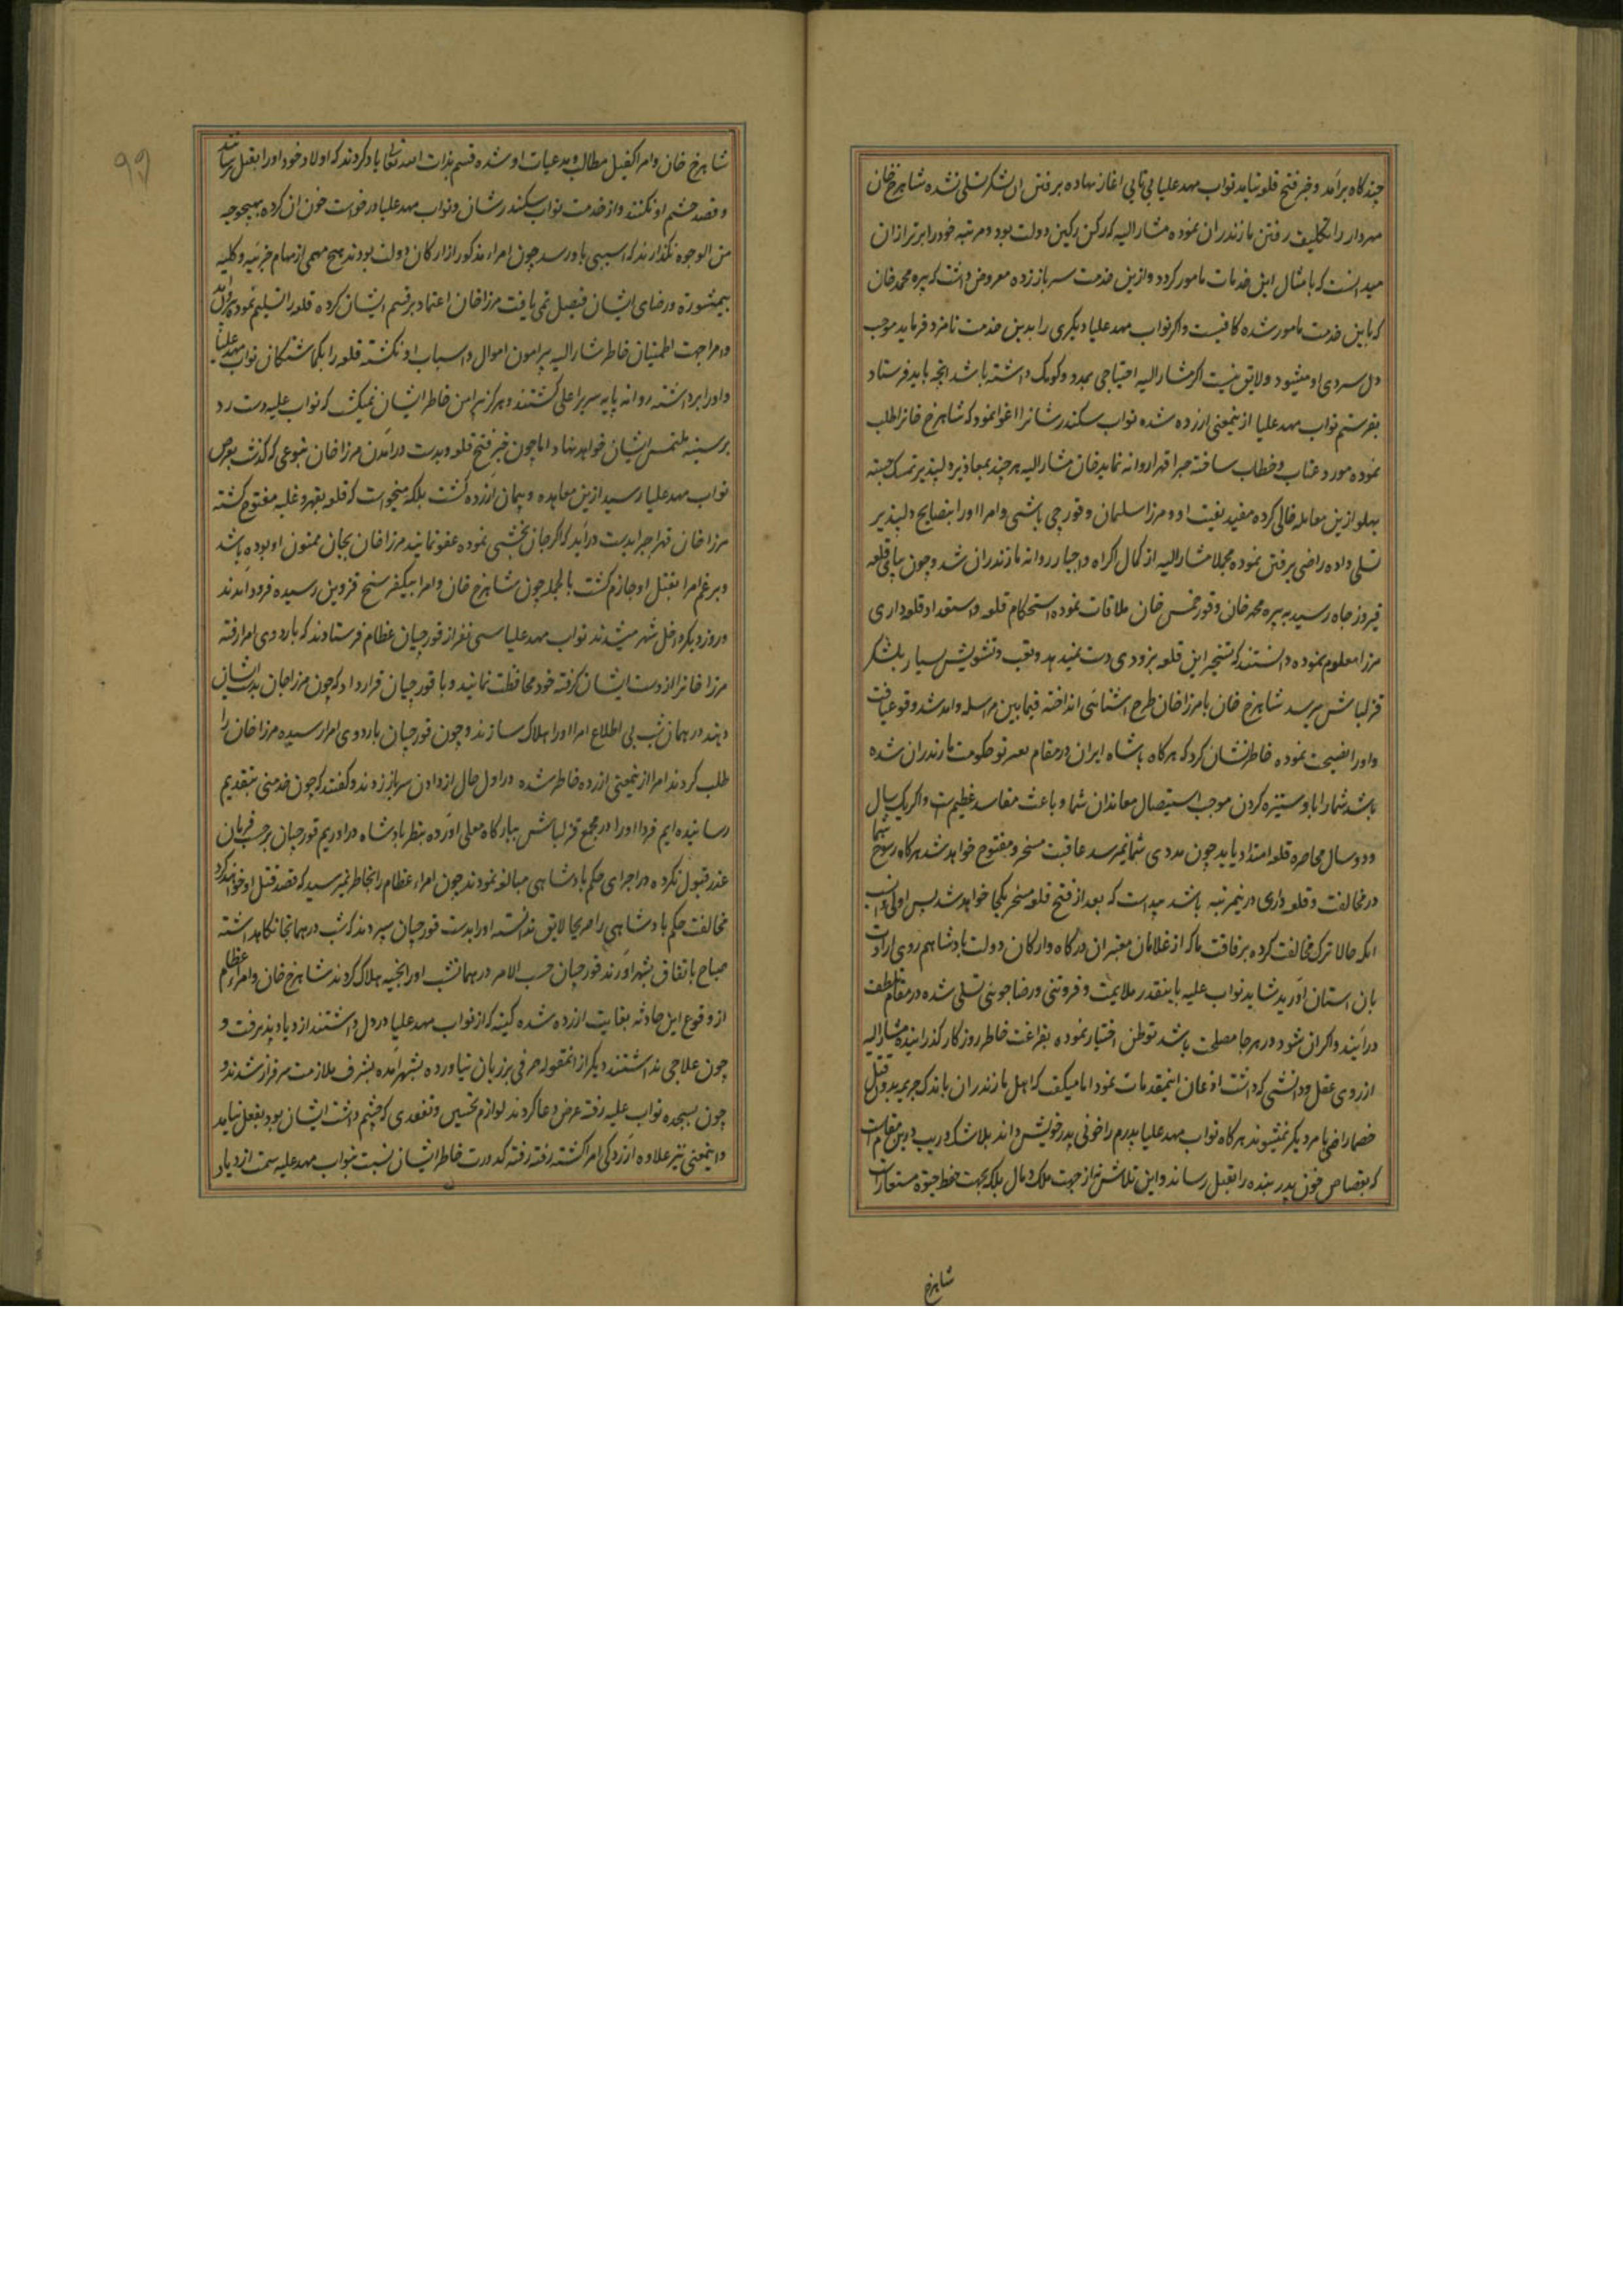 چند کاه برآمد و خبر فتح قلعه نیامد نواب مهد علیا بی تابی اغاز نهاده برفتن ان لشکر تسلی نشده شاهرخ خان
مهردار را تکلیف رفتن مازندران نموده مشار الیه که رکن رکین دولت بود و مرتبه خود را برتر از ان
میدانست که بامثال این خدمات مامور کردد و ازین خدمت سرباز زده معروض داشت که پیره محمد خان
که باین خدمت مامور شده کافیست و اکر نواب مهد علیا دیکری را بدین خدمت نامزد فرماید موجب
دل سردی او میشود و لایق نیست اکر مشار الیه احتیاجی بمدد و کومک داشته باشد انچه باید فرستاد
بفرستیم نواب مهد علیا ازینمعنی ازرده شده نواب سکندرشانرا اغوا نمود که شاهرخ خانرا طلب
نموده مورد عتاب و خطاب ساخته جبرا قهرا روانه نماید خان مشار الیه هر چند بمعاذیر دلپذیر تمسک جسته
پهلو ازین معامله خالی کرده مفید نیفتاد و مرزا سلمان و قورچی باشی و امرا او را بنصایح دلپذیر
تسلی داده راضی برفتن نموده مجملا مشار الیه از کمال اکراه و اجبار روانه مازندران شد و چون بپای قلعه
فیروز جاه رسید به پیره محمد خان و قورخمس خان ملاقات نموده استحکام قلعه و استعداد قلعه داری
مرزا معلوم نموده دانستند که تسخیر این قلعه بزودی دست نمیدهد و تعب و تشویش بسیار بلشکر
قزلباش میرسد شاهرخ خان با مرزا خان طرح اشنائی انداخته فیما بین مراسله و امد شد وقوع یافت
و او را نصیحت نموده خاطر نشان کرد که هر کاه پادشاه ایران در مقام حکومت مازندران شده
باشد شما را با او ستیزه کردن موجب استیصال معاندان شما و باعث مفاسد عظیم است و اکر یک سال
و دو سال محاصره قلعه امتداد یابد چون مددی بشما نمیرسد عاقبت مسخر و مفتوح خواهد شد هر کاه رسوخ شما
در مخالفت و قلعه داری درینمرتبه باشد پیداست که بعد از فتح قلعه منجر بکجا خواهد شد پس اولی و انسب
انکه حالا ترک مخالفت کرده برفاقت ما که از غلامان معتبر ان درکاه و ارکان دولت پادشاهیم روی ارادت
بان استان اورید شاید نواب علیه باینقدر ملایمت و فروتنی و رضاجوئی تسلی شده در مقام لطف
درآیند و اکر ان نشود در هر جا مصلحت باشد توطن اختیار نموده بفراغت خاطر روزکار کذرانیده مشار الیه
از روی عقل و دانشی که داشت اذعان اینمقدمات نمود اما میکفت که اهل مازندران باندک جریمه بدو قتل
خصما راضی با مر دیکر نمیشوند هر کاه نواب مهد علیا پدرم را خونی پدر خویش داند بلا شک و ریب درین مقام است
که بقصاص خون پدر بنده را بقتل رساند و این تلاش نه از جهت ملک و مال بلکه بجهت حفظ حیوة مستعار است
شاهرخ
شاهرخ خان و امرا کفیل مطالب و مدعیات او شده قسم بذات الله تعالی یاد کردند که اولاد خود او را بقتل نرسانند
و قصد چشم او نکنند و از خدمت نواب سکندرشان و نواب مهد علیا درخواست خون ان کرده بهیچوجه
من الوجوه نکذارند که اسیبی باو رسد چون امراء مذکور از ارکان دولت بودند هیچ مهمی از مهام جزئیه و کلیه
بیمشوره و رضای ایشان فیصل نمی یافت مرزا خان اعتماد بر قسم ایشان کرده قلعه را تسلیم نمود بزیر آمد
و امرا جهت اطمینان خاطر مشار الیه پیرامون اموال و اسباب او نکشته قلعه را بکماشتکان نواب مهد علیا
و او را برداشته روانه پایه سریر اعلی کشتند و هرکز پیرامن خاطر ایشان نمیکشت که نواب علیه دست رد
بر سینه ملتمس ایشان خواهد نهاد اما چون خبر فتح قلعه و بدست درامدن مرزا خان بنوعی که کذشت بعرض
نواب مهد علیا رسید ازین معاهده و پیمان آزرده کشت بلکه میخواست که قلعه بقهر و غلبه مفتوح کشته
مرزا خان قهرا جبرا بدست درآید که اکر جان بخشی نموده عفو نمایند مرزا خان بجان ممنون او بوده باشد
و برغم امرا بقتل او جازم کشت بالجمله چون شاهرخ خان و امرا بیکفرسنخ قزوین رسیده فرود آمدند
و روز دیکر داخل شهر میشدند نواب مهد علیا سی نفر از قورچیان عظام فرستادند که باردوی امرا رفته
مرزا خانرا از دست ایشان کرفته خود محافظت نمایند و با قورچیان قرار داد که چون مرزا خان بدست ایشان
دهند در همان شب بی اطلاع امرا او را هلاک سازند و چون قورچیان باردوی امرا رسیده مرزا خان را
طلب کردند امرا ازینمعنی ازرده خاطر شده در اول حال از دادن سرباز زدند و کفتند که چون خدمتی بتقدیم
رسانیده ایم فردا او را در مجمع قزلباش ببارکاه معلی آورده بنظر پادشاه درآوریم قورچیان بر حسب فرمان
عذر قبول نکرده در اجرای حکم پادشاهی مبالغه نمودند چون امراء عظام را بخاطر نمیرسید که قصد قتل او خواهند کرد
مخالفت حکم پادشاهی را صریحا لایق ندانسته او را بدست قورچیان سپردند که شب در همانجا نکاه داشته
صباح باتفاق بشهر آورند قورچیان حسب الامر در همانشب او را بخبه هلاک کردند شاهرخ خان و امراء عظام
از وقوع این حادثه بغایت ازرده شده کینه که از نواب مهد علیا در دل داشتند ازدیاد پذیرفت و
چون علاجی نداشتند دیکر از انمقوله حرفی بر زبان نیاورده بشهر آمده بشرف ملازمت سرفراز شدند و
چون بسجده نواب علیه رفته عرض دعا کردند لوازم تحسین و تفقدی که چشم داشت ایشان بود بفعل نیامد
و اینمعنی نیز علاوه آزردکی امرا کشته رفته رفته کدورت خاطر ایشان نسبت بنواب مهد علیه سمت ازدیاد